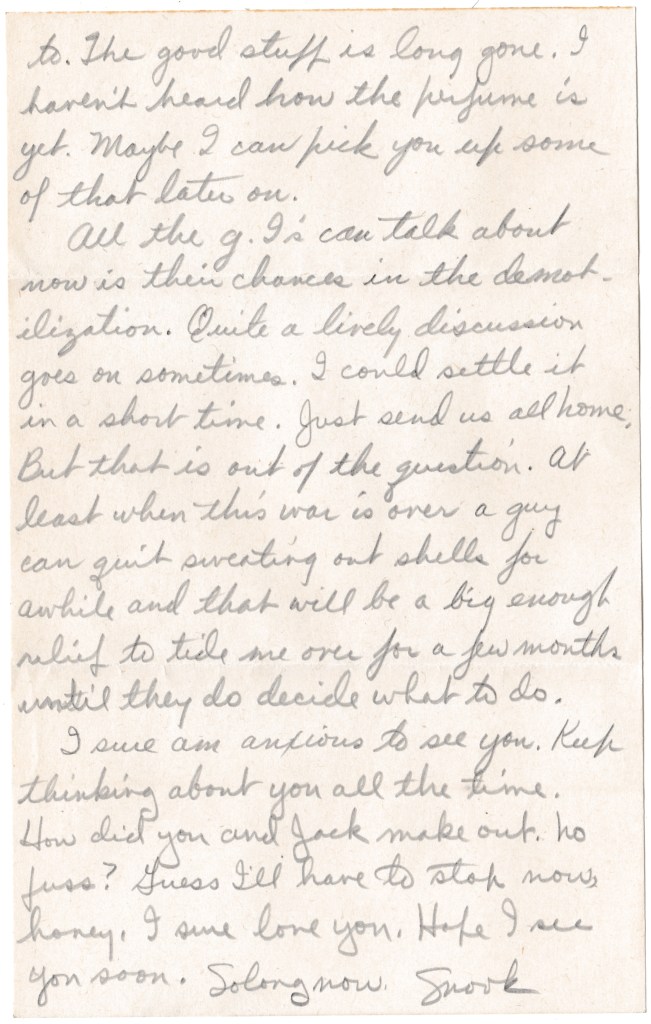 to. The good stuff is long gone. I
haven't heard how the perfume is
yet. Maybe I can pick you up some
of that later on.
All the g. I's can talk about
now is their chances in the demob-
ilization. Quite a lively discussion
goes on sometimes. I could settle it
in a short time. Just send us all home.
But that is out of the question. At
least when this war is over a guy
can quit sweating out shells for
awhile and that will be a big enough
relief to tide me over for a few months
until they do decide what to do.
I sure am anxious to see you. Keep
thinking about you all the time.
How did you and Jack make out. No
fuss? Guess I'll have to stop now,
honey. I sure love you. Hope I see
you soon. So long now. Snook